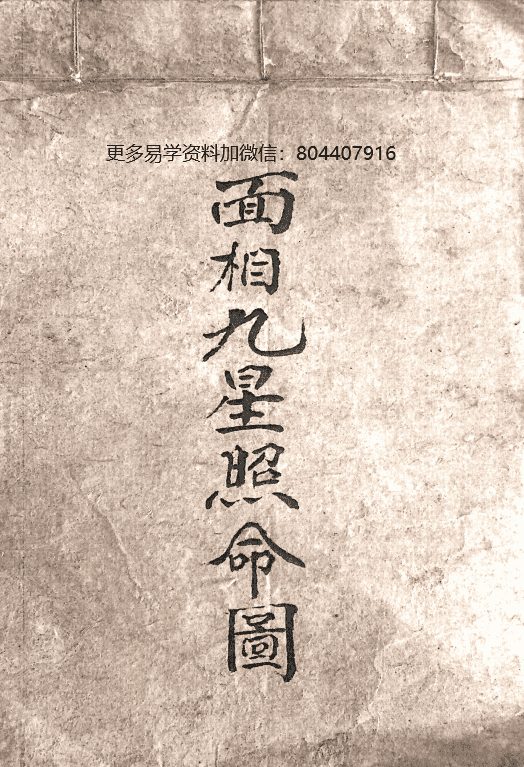 更多易学资料加微信：804407916
面相九星照命圖